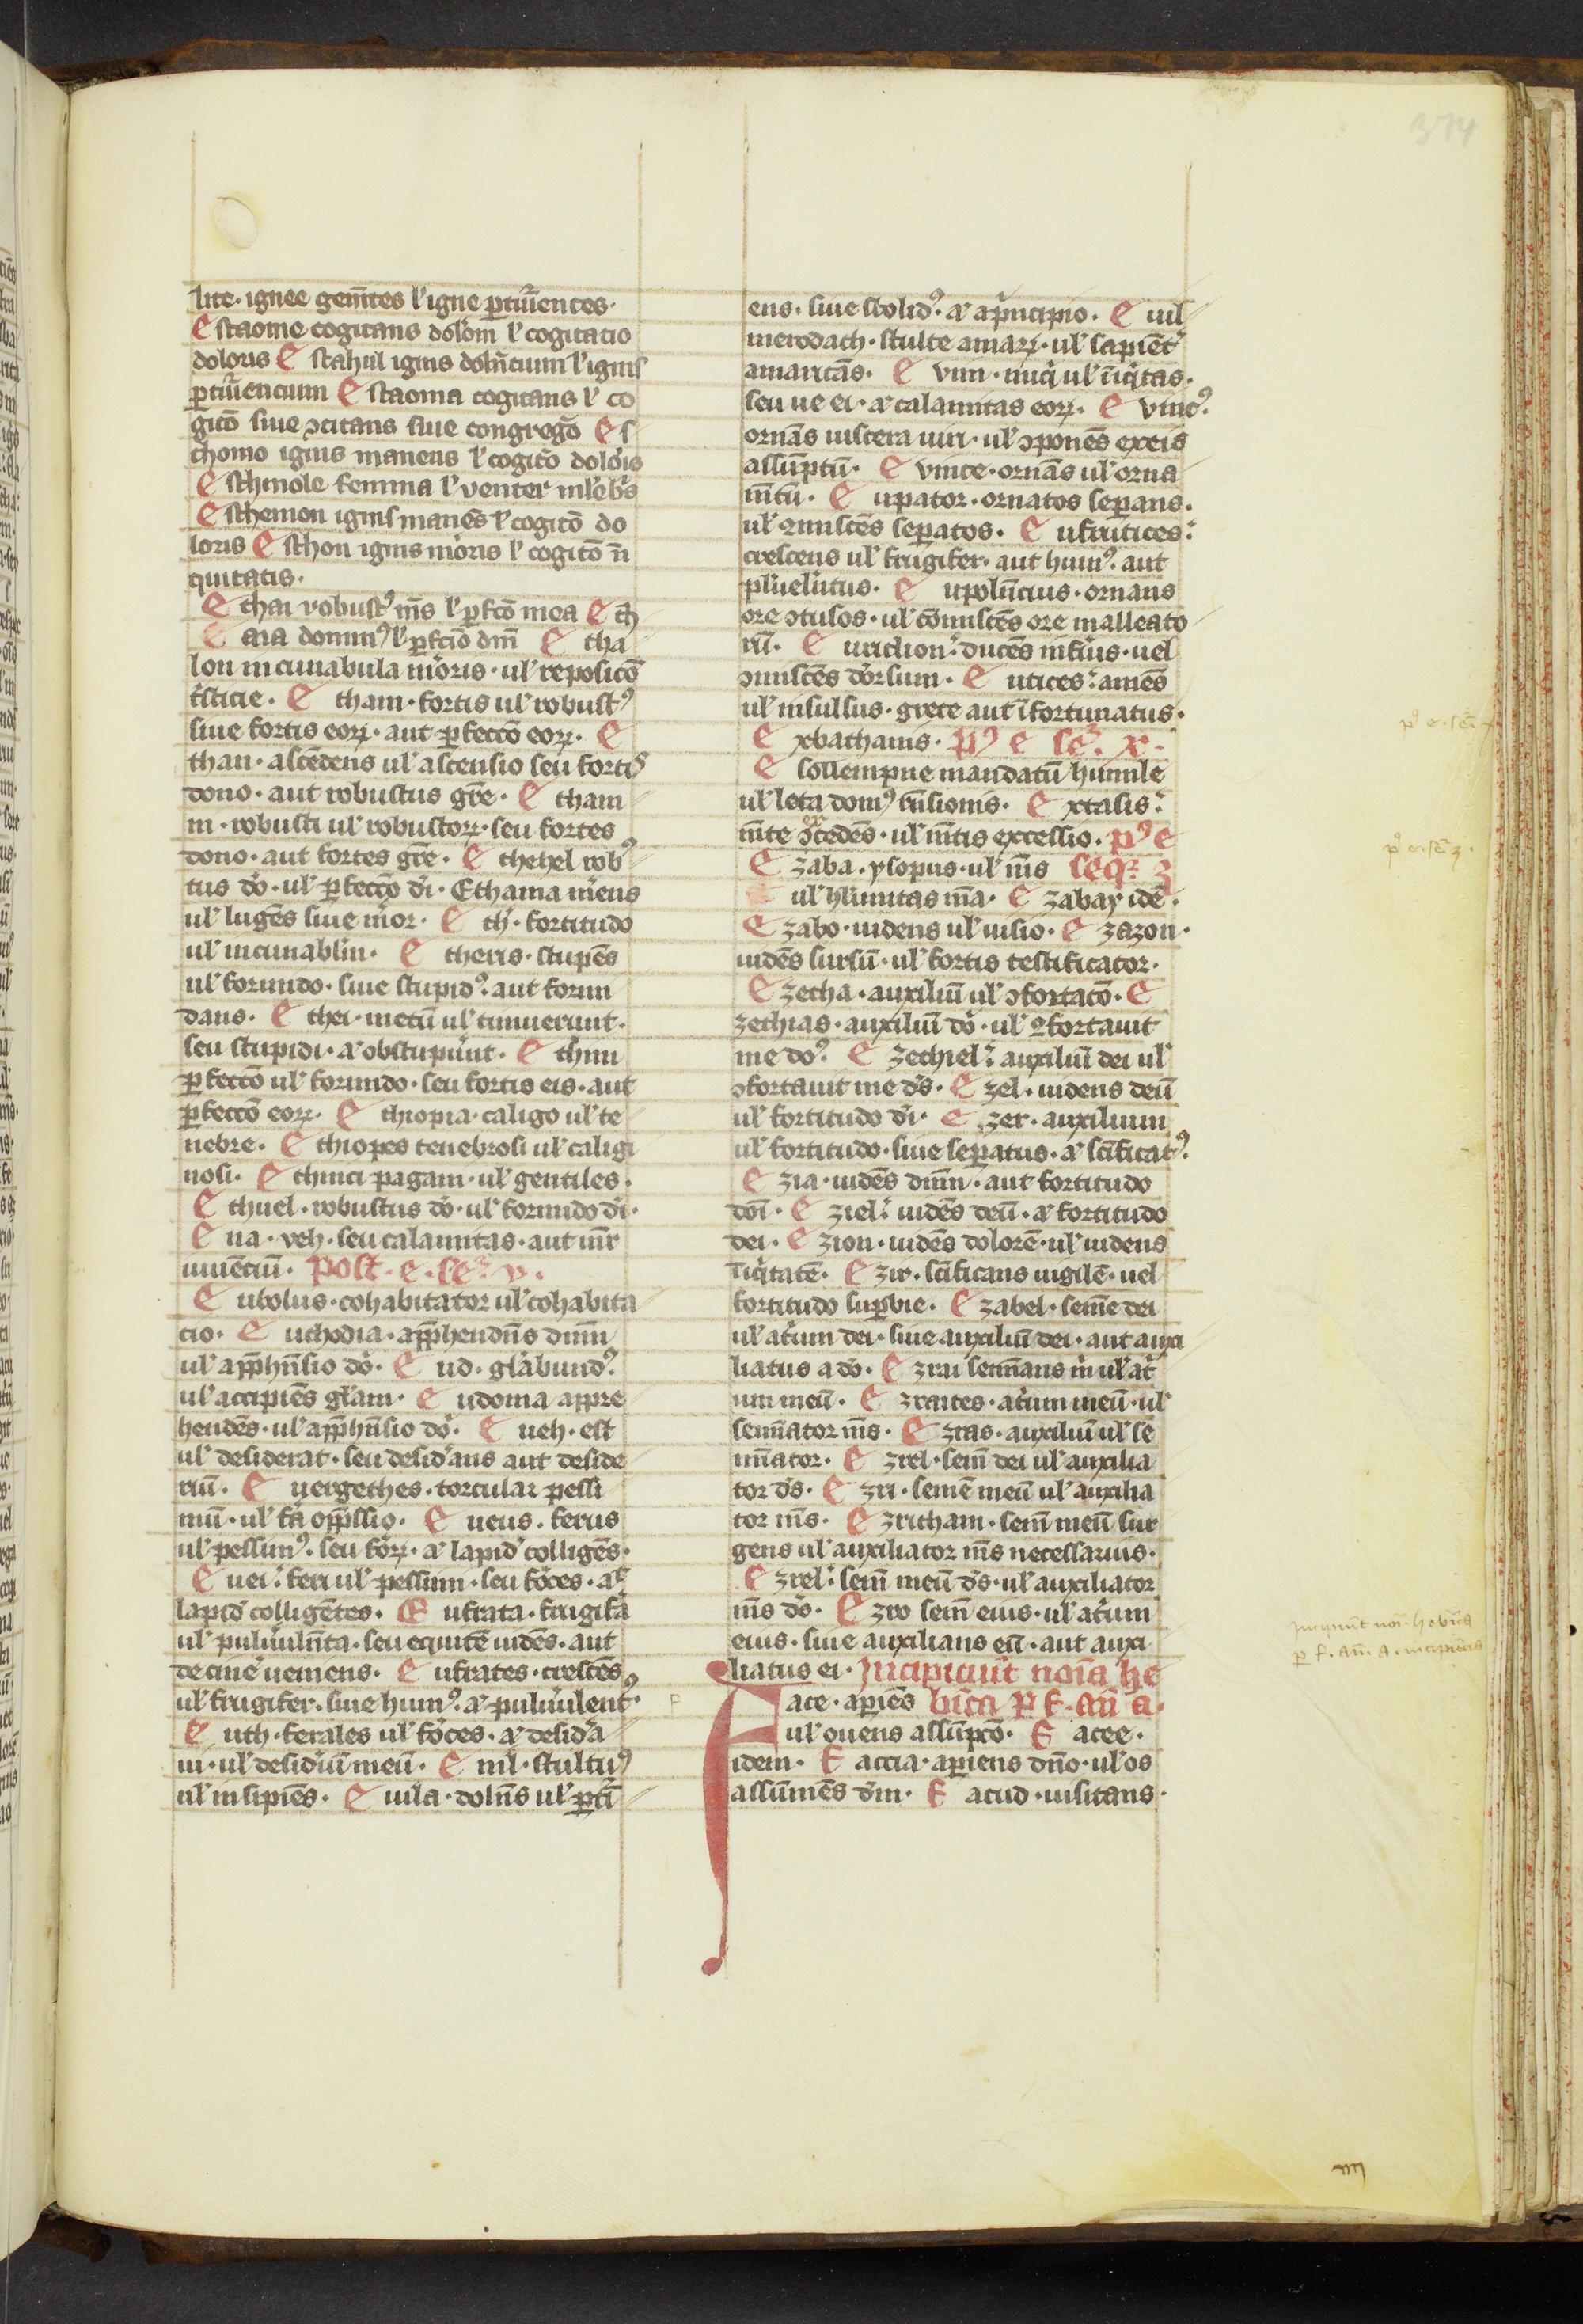 374
lite· ignee gem̅ites l' igne p̲tur̅ientes·
Estaome cogitans dolo̅m l' cogitatio
doloris Estahul ignis doln̅tium l' ignis
p̲tur̅ientium Estaoma cogitans l' co
gito̅ siue ɔcitans siue congrego̅ Es
thomo ignis manens l' cogito̅ dolo̅is
Esthmole femina l' venter ml'eb's
Esthemon ignis mane̅s l' cogito̅ do
loris Esthon ignis me̅oris l' cogito̅ n̅
quitatis·
Ethai robust9 m̅s l' p̲fco̅ mea Eth
E aia domin9 l' p̲fcio̅ dn̅i E tha
lon incunabula me̅oris· ul' reposico̅
t̅sticie· E tham· fortis ul' robust9
siue fortis eoꝝ· aut p̲fecco̅ eoꝝ· E
than· asce̅dens ul' ascensio seu fortis
dono· aut robustus gr̅e· E tham
m· robusti ul' robustoꝝ· seu fortes
dono· aut fortes gr̅e· E thehel rob9
tus do̅· ul' p̲fecco̅ di̅· Ethama m̅ens
ul' luge̅s siue me̅or· E th̅· fortitudo
ul' incunabl̅m· E theris· stupe̅s
ul' formido· siue stupid9· aut formi
dans· E thei· metu̅ ul' timuerunt·
seu stupidi· ⁊ obstupu̅nt· E thi̅m
p̲fecco̅ ul' formido· seu fortis eis· aut
p̲fecco̅ eoꝝ· E thiopia· caligo ul' te
nebre· E thiopes tenebrosi ul' caligi
nosi· E thinci pagani· ul' gentiles·
E thuel· robustus do̅· ul' formido di̅·
E ua· veh· seu calamitas· aut in̅r
imie̅ciu̅· Post· e· se̅· v·
E ubolus· cohabitator ul' cohabita
cio· E uchodia· app̅hendn̅s dn̅m
ul' app̅hn̅sio do̅· E ud· gl'abund9·
ul' accipie̅s gl'am· E udoma appre
hende̅s· ul' app̅hn̅sio do̅· E ueh· est
ul' desiderat· seu desid'ans aut deside
riu̅· E uergethes· torcular pessi
mu̅· ul' fa̅ opp̅ssio· E ueus· ferus
ul' pessim9· seu fo̅ꝝ· ⁊ lapid' collige̅s·
E uei· feri ul' pessimi· seu fo̅ces· ⁊
lapid' collige̅tes· E ufrata· frugifa̅
ul' puluu̅ln̅ta· seu equite̅ uide̅s· aut
de ciue̅ ueniens· E ufrates· cresce̅s
ul' frugifer· siue hum9· ⁊ puluu̅lent9·
E uth· ferales ul' fo̅ces· ⁊ desid'a
ui· ul' desid'iu̅ meu̅· E uil· stultu9
ul' insipie̅s· E uila· doln̅s ul' p̲ti̅
ens· siue stolid9· ⁊ a p̅ncipio· E uil
merodach· stulte amaꝝ· ul' sapie̅t'
amarica̅s· E vim· iniq̅ ul' iniq̅tas·
seu ue ei· ⁊ calamitas eoꝝ· E vinc9·
orna̅s uiscera uiri· ul' ɔpone̅s ex eis
assu̅ptu̅· E vince· orna̅s ul' orna
m̅tu̅· E upator· ornatos sep̲ans·
ul' ꝯmisce̅s sep̲atos· E ufrutices·
crescens ul' frugifer· aut hum9· aut
plu̅elu̅tus· E upolu̅cius· ornans
ore ɔtusos· ul' co̅misce̅s ore malleato
ru̅· E urichon· duce̅s infi̅us· uel
ɔmisce̅s do̅rsum· E utices· ame̅s
ul' insulsus· grece aut i̅fortunatus·
E xbathanis· p9 e se̅· x·
E sollempne mandatu̅ humile
ul' leta dom9 u̅sionis· E xtasis·
m̅te ex̅cede̅s· ul' m̅tis excessio· p9 e
E zaba· ysopus· ul' m̅s seq̅· z
ul' hu̅mitas m̅a· E zabay ide̅·
E zabo· uidens ul' uisio· E zazon·
uide̅s sursu̅· ul' fortis testificator·
E zecha· auxiliu̅ ul' ɔfortaco̅· E
zechias· auxiliu̅ do̅· ul' ꝯfortauit
me do9· E zechiel· auxiliu̅ dei ul'
ɔfortauit me d̅s· E zel· uidens deu̅
ul' fortitudo di̅· E zer· auxilium
ul' fortitudo· siue sep̲atus· ⁊ sc̅ificat9·
E zia· uide̅s dn̅m· aut fortitudo
dn̅i· E ziel· uide̅s deu̅· ⁊ fortitudo
dei· E zion· uide̅s dolore̅· ul' uidens
iniq̅tate̅· E zir· sc̅ificans uigile̅· uel
fortitudo sup̲bie· E zabel· seme̅ dei
ul' at̅ium dei· siue auxiliu̅ dei· aut auxi
liatus a do̅· E zrai semi̅ans m̅ ul' at̅
um meu̅· E zraites· at̅ium meu̅· ul'
semi̅ator m̅s· E zras· auxiliu̅ ul' se
mi̅ator· E zrel· sem̅ dei ul' auxilia
tor d̅s· E zri· seme̅ meu̅ ul' auxilia
tor m̅s· E zricham· sem̅ meu̅ sur
gens ul' auxiliator m̅s necessarius·
E zrel· sem̅ meu̅ d̅s· ul' auxiliator
m̅s d̅s· E zro sem̅ eius· ul' at̅ium
eius· siue auxilians eu̅· aut auxi
liatus ei· Incipiunt noi̅a he
Face· ap̲ie̅s bi̅ca p̲ f· an̅ a·
ul' ouens assu̅pco̅· F acee·
idem· F accia· ap̲iens dn̅o· ul' os
assu̅me̅s dn̅m· F acud· uisitans·
p9 e· se̅· x
p9 e· se̅ z·
Incipiu̅t noi̅a hebrai̅ca
p̲ f· an̅· a· incipie̅cia